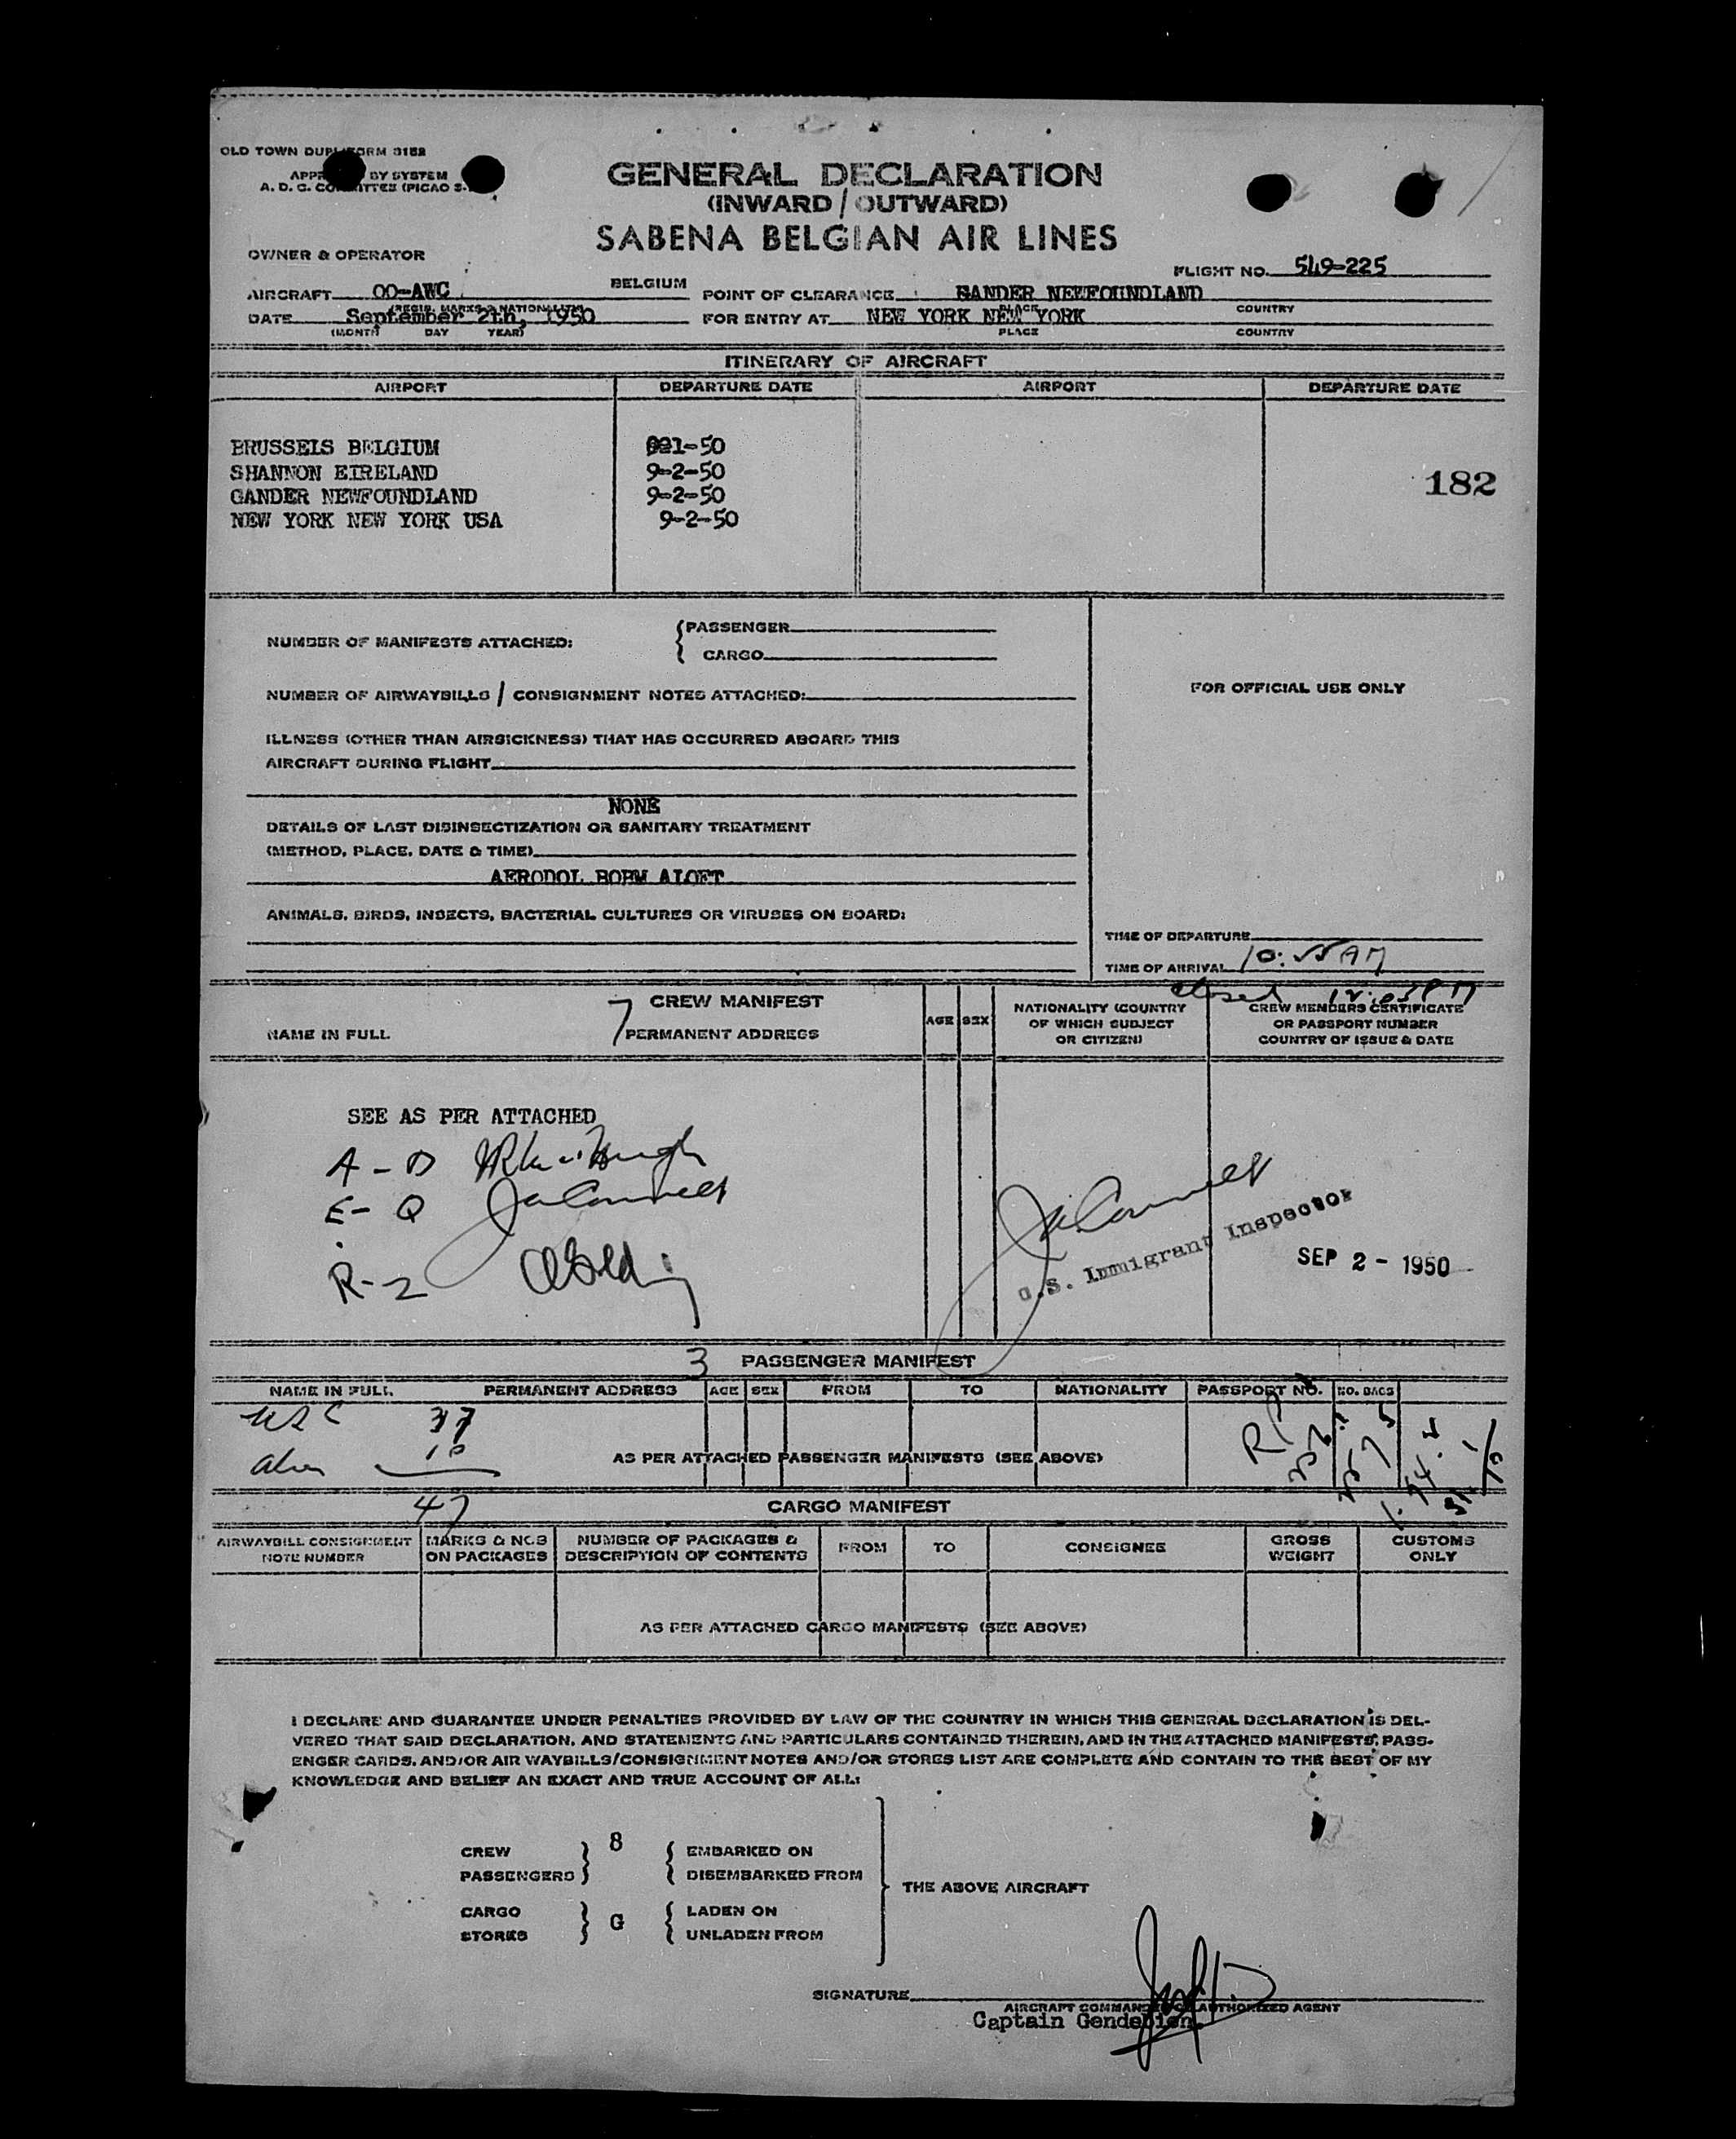 OLD TOWN DUPLI FORM 3152
APPR BY SYSTEM
A. D. C. COMMITTEE (PICAO S-
GENERAL DECLARATION
(INWARD / OUTWARD)
SABENA BELGIAN AIR LINES
OWNER & OPERATOR
FLIGHT NO. 549-225
AIRCRAFT OO-AWC BELGIUM
(REGIS. MARKS & NATIONALITY)
POINT OF CLEARANCE GANDER NEWFOUNDLAND
PLACE COUNTRY
DATE September 2th, 1950
(MONTH DAY YEAR)
FOR ENTRY AT NEW YORK NEW YORK
PLACE COUNTRY
ITINERARY OF AIRCRAFT
AIRPORT DEPARTURE DATE AIRPORT DEPARTURE DATE
BRUSSELS BELGIUM 1-50
SHANNON EIRELAND 9-2-50
GANDER NEWFOUNDLAND 9-2-50
NEW YORK NEW YORK USA 9-2-50
182
NUMBER OF MANIFESTS ATTACHED: { PASSENGER
CARGO
NUMBER OF AIRWAYBILLS / CONSIGNMENT NOTES ATTACHED:
FOR OFFICIAL USE ONLY
ILLNESS (OTHER THAN AIRSICKNESS) THAT HAS OCCURRED ABOARD THIS
AIRCRAFT DURING FLIGHT
NONE
DETAILS OF LAST DISINSECTIZATION OR SANITARY TREATMENT
(METHOD, PLACE, DATE & TIME)
AERODOL BOPM ALOFT
ANIMALS, BIRDS, INSECTS, BACTERIAL CULTURES OR VIRUSES ON BOARD:
TIME OF DEPARTURE
TIME OF ARRIVAL 10:55 AM
closed 12:05 PM
7 CREW MANIFEST
NAME IN FULL PERMANENT ADDRESS AGE SEX
NATIONALITY (COUNTRY
OF WHICH SUBJECT
OR CITIZEN)
CREW MEMBERS CERTIFICATE
OR PASSPORT NUMBER
COUNTRY OF ISSUE & DATE
SEE AS PER ATTACHED
A - D
E - Q
R - Z
U.S. Immigrant Inspector
SEP 2 - 1950
3 PASSENGER MANIFEST
NAME IN FULL PERMANENT ADDRESS AGE SEX FROM TO NATIONALITY PASSPORT NO. NO. BAGS
USC 37
alien 10
AS PER ATTACHED PASSENGER MANIFESTS (SEE ABOVE)
47
CARGO MANIFEST
AIRWAYBILL CONSIGNMENT
NOTE NUMBER
MARKS & NOS
ON PACKAGES
NUMBER OF PACKAGES &
DESCRIPTION OF CONTENTS
FROM TO CONSIGNEE
GROSS
WEIGHT
CUSTOMS
ONLY
AS PER ATTACHED CARGO MANIFESTS (SEE ABOVE)
I DECLARE AND GUARANTEE UNDER PENALTIES PROVIDED BY LAW OF THE COUNTRY IN WHICH THIS GENERAL DECLARATION IS DEL-
VERED THAT SAID DECLARATION, AND STATEMENTS AND PARTICULARS CONTAINED THEREIN, AND IN THE ATTACHED MANIFESTS, PASS-
ENGER CARDS, AND/OR AIR WAYBILLS/CONSIGNMENT NOTES AND/OR STORES LIST ARE COMPLETE AND CONTAIN TO THE BEST OF MY
KNOWLEDGE AND BELIEF AN EXACT AND TRUE ACCOUNT OF ALL:
CREW } 8 { EMBARKED ON
PASSENGERS DISEMBARKED FROM
THE ABOVE AIRCRAFT
CARGO } G { LADEN ON
STORES UNLADEN FROM
SIGNATURE
AIRCRAFT COMMANDER OR AUTHORIZED AGENT
Captain Gendebien